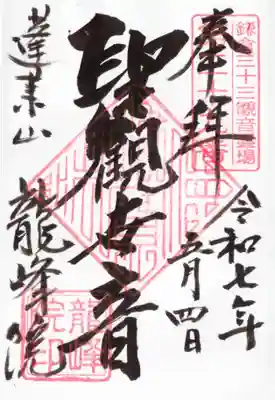 奉拝
鎌倉三十三観音霊場
令和七年
五月四日
聖觀世音
蓬莱山
龍峰院
龍峰院印